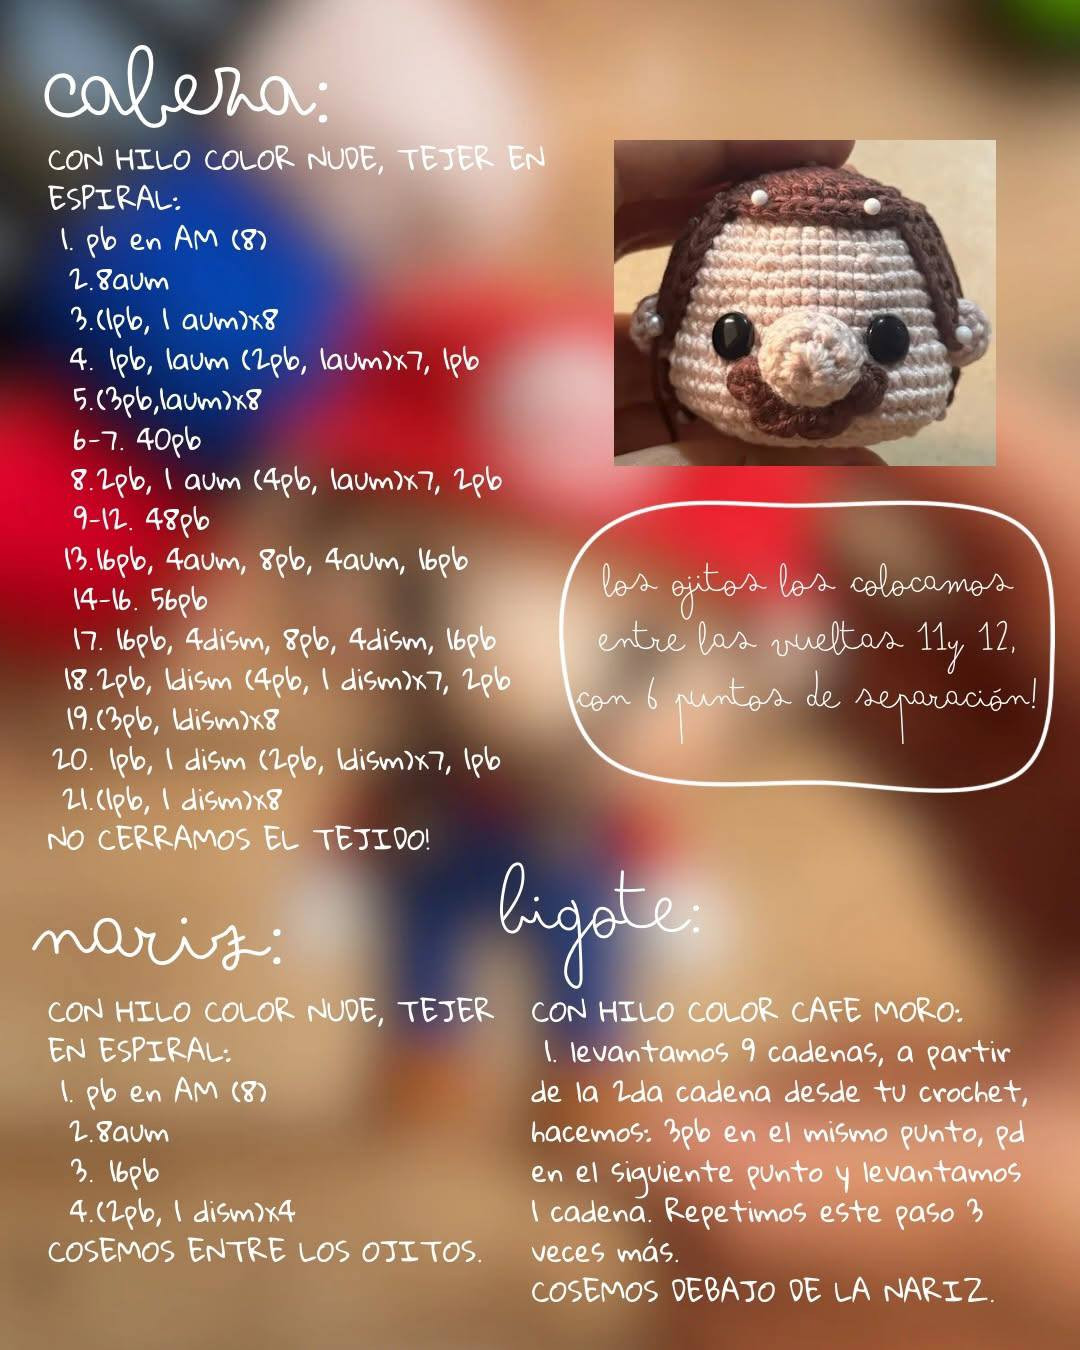 cabeza:
CON HILO COLOR NUDE, TEJER EN
ESPIRAL:
1. pb en AM (8)
2.8aum
3.(1pb, 1 aum)x8
4. 1pb, 1aum (2pb, 1aum)x7, 1pb
5.(3pb,1aum)x8
6-7. 40pb
8.2pb, 1 aum (4pb, 1aum)x7, 2pb
9-12. 48pb
13.16pb, 4aum, 8pb, 4aum, 16pb
14-16. 56pb
17. 16pb, 4dism, 8pb, 4dism, 16pb
18.2pb, 1dism (4pb, 1 dism)x7, 2pb
19.(3pb, 1dism)x8
20. 1pb, 1 dism (2pb, 1dism)x7, 1pb
21.(1pb, 1 dism)x8
NO CERRAMOS EL TEJIDO!
los ojitos los colocamos
entre las vueltas 11y 12,
con 6 puntos de separación!
nariz:
CON HILO COLOR NUDE, TEJER
EN ESPIRAL:
1. pb en AM (8)
2.8aum
3. 16pb
4.(2pb, 1 dism)x4
COSEMOS ENTRE LOS OJITOS.
bigote:
CON HILO COLOR CAFE MORO:
1. levantamos 9 cadenas, a partir
de la 2da cadena desde tu crochet,
hacemos: 3pb en el mismo punto, pd
en el siguiente punto y levantamos
1 cadena. Repetimos este paso 3
veces más.
COSEMOS DEBAJO DE LA NARIZ.